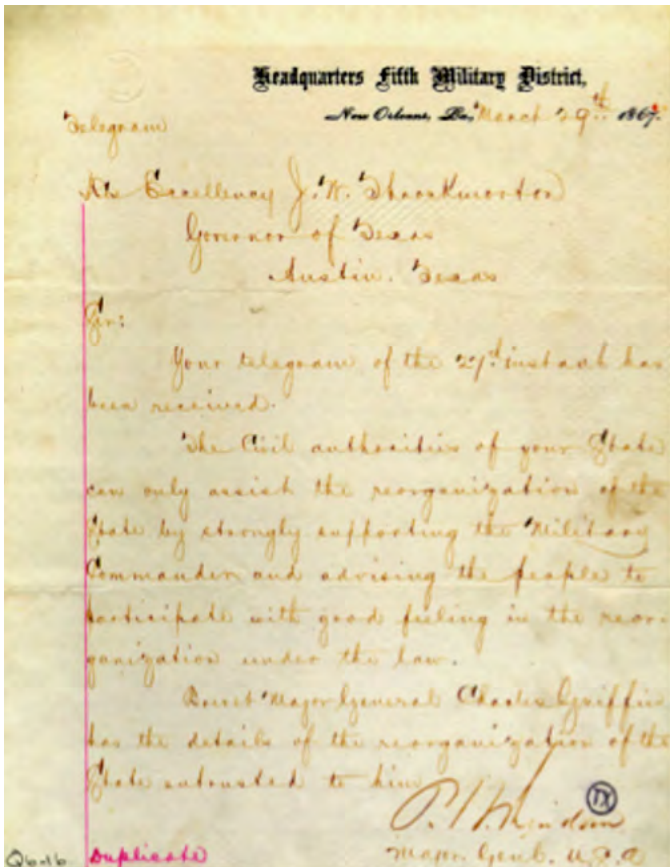 Headquarters Fifth Military District,
New Orleans, La, March 29th 1867.
Telegram
His Excellency J. W. Throckmorton
Governor of Texas
Austin. Texas
Sir:
Your telegram of the 27th instant has
been received.
The Civil authorities of your State
can only assist the reorganization of the
State by strongly supporting the Military
Commander and advising the people to
participate with good feeling in the reor-
ganization under the law.
Brevet Major General Charles Griffin
has the details of the reorganization of the
State entrusted to him
P. H. Sheridan
Major Genl. U.S.A.
TX
Duplicate